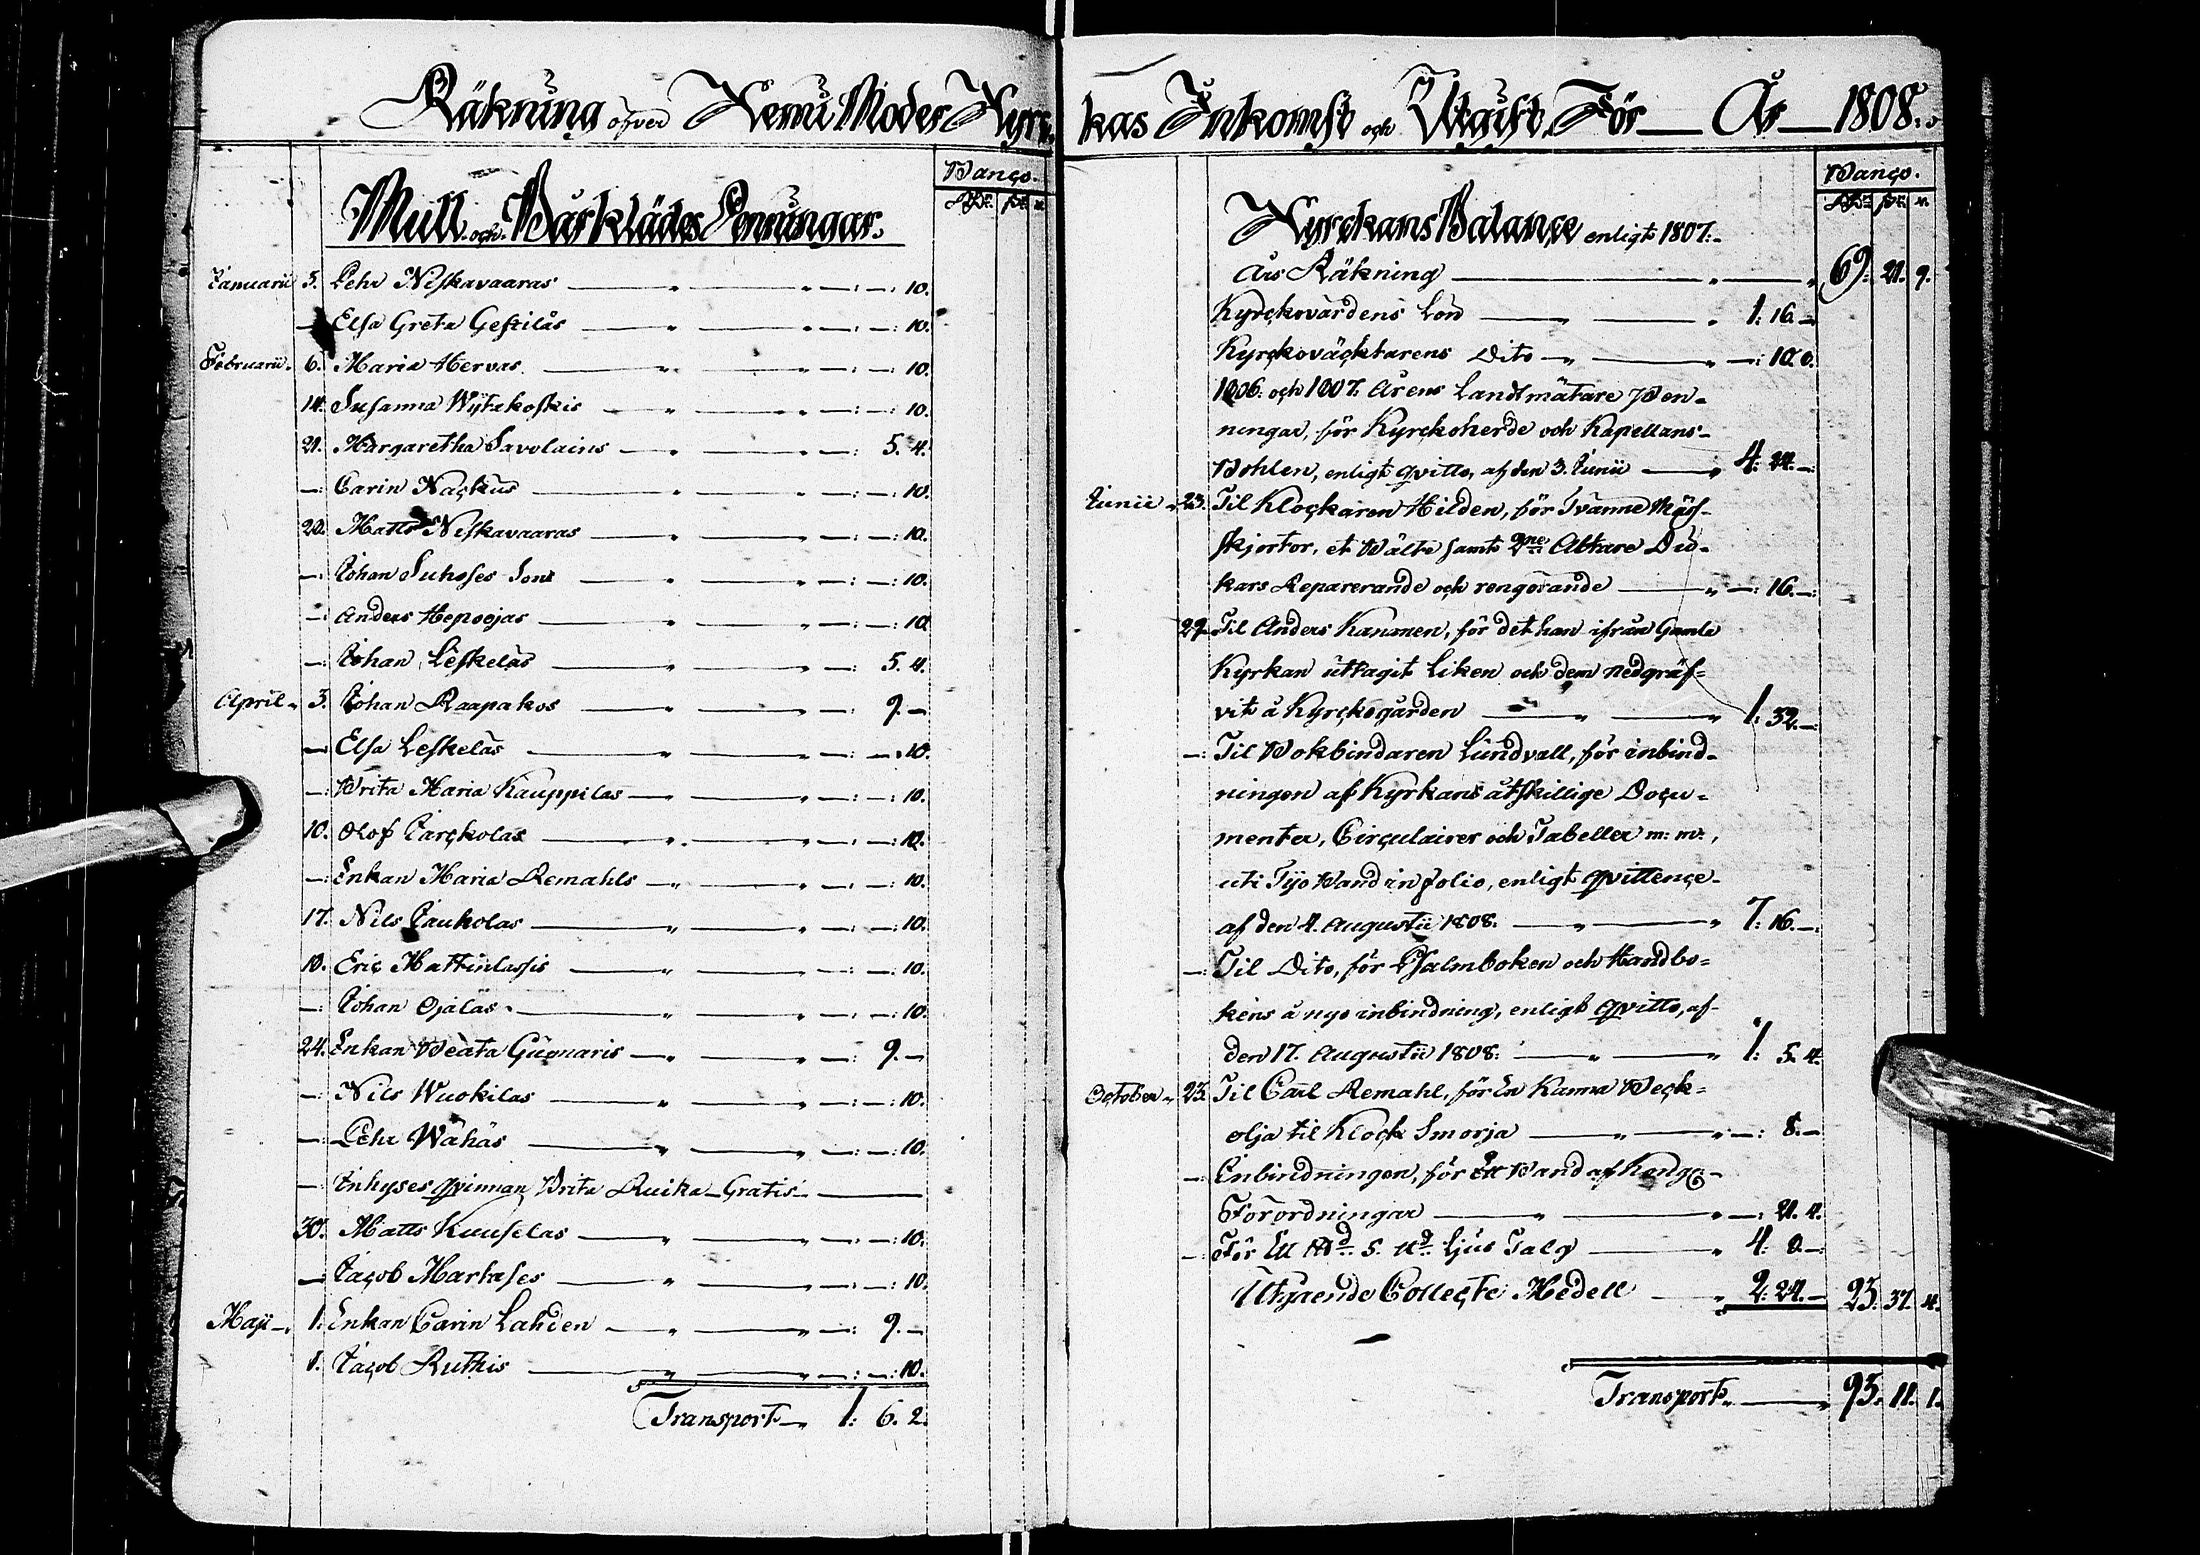 Räkning öfver Kemi Moder Kyrc
Banço.
Rd. ß. r.
Mull och Bårklädes Penningar.
Januarii 3. Pehr Niskavaaras — " — " — : — : 10.
— Elsa Greta Geskilás — " — " — : — : 10.
Februarii. 6. Maria Hervas. — " — " — : — : 10.
14. Susanna Wijtakoskis — " — " — : — : 10.
21. Margaretha Savolains — " — " — : 5. 4.
— : Carin Nackus — " — " — : — : 10.
28. Matts Niskavaaras — " — " — : — : 10.
— : Johan Suhoses Son — " — " — : — : 10.
— : Anders Hepoojas — " — " — : — : 10.
— : Johan Leskeläs — " — " — : 5. 4.
April " 3. Johan Raapakos — " — " — : 9. —
— Elsa Leskeläs — " — " — : — : 10.
— : Brita Maria Kauppilas — " — " — : — : 10.
10. Olof Jarckolas — " — " — : — : 10.
— : Enkan Maria Remahls — " — " — : — : 10.
17. Nils Jaukolas — " — " — : — : 10.
18. Eric Mattinlassis — " — " — : — : 10.
— : Johan Ojalas. — " — " — : — : 10.
24. Enkan Beata Gúnnaris — " — " — : 9. —
— : Nils Wuokilas — " — " — : — : 10.
— : Pehr Wähäs — " — " — : — : 10.
— : Inhyses qvinnan Brita Ruika — Gratis —
30. Matts Kuuselas — " — " — : — : 10.
— Jacob Markases — " — " — : — : 10.
Maji — . 1. Enkan Carin Lahden — " — " — : 9. —
8. Jacob Ruthis — " — " — : — : 10.
Transport — " 1: 6. 2.
kas Inkomst och Utgift. För — År — 1808.
Banço.
Rd. ß. r.
Kyrckans Balançe enligt 1807:
Års Räkning — " — " 69: 21. 9.
Kyrckovärdens Lön — " — " 1: 16. —
Kyrckoväcktarens Dito — " — " — : 10. 8.
1806. och 1807. Årens Landtmätare Pen-
ningar, för Kyrckoherde och Kapellans-
Bohlen, enligt qvitto, af den 3. Junii — " 4: 24. —
Junii " 23. Til Klockaren Hilden, för Tvänne Mäss-
skjortor, et Bälte samt 2ne Altare Du-
kars Reparerande och rengörande — " — : 16. — :
29. Til Anders Kanmen, för det han ifrån Gamla
Kyrkan uttagit Liken och dem nedgräf-
vit å Kyrckogården — " — " 1: 32. —
— : Til Bokbindaren Lundvall, för inbind-
ningen af Kyrkans åtskillige Docu-
menter, Circulairer och Tabeller m: m:,
uti Tijo Band in folio, enligt qvittençe
af den 4. Augusti 1808. — " — " 7: 16. — :
— : Til Dito, för Psalmboken och Handbo-
kens å nyo inbindning, enligt qvitto, af
den 17. Augusti 1808. — " — " 1: 5. 4.
October " 23. Til Carl Remahl, för En Kanna Beck-
olja til Klock Smörja — " — " — : 8. —
— : Inbindningen, för Ett Band af Kongl:
Förordningar — " — " — : 21. 4.
— : För Ett Ld. 5. Md. Ljus Talg — " 4: 8. — :
Utgående Collecte Medell — " 2: 24. — 23. 37. 4.
Transport — " 93. 11. 1.